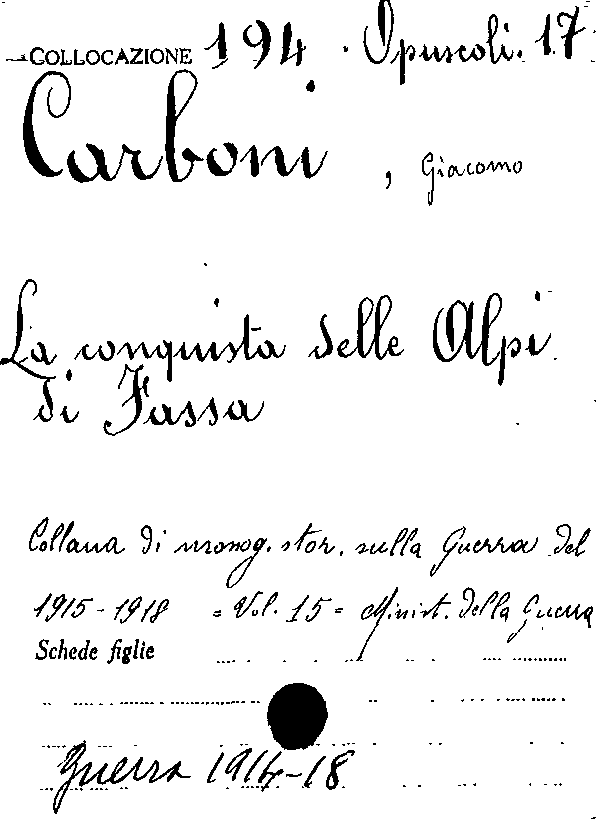 COLLOCAZIONE 194. Opuscoli. 17
Carboni, Giacomo
La conquista delle Alpi
di Fassa
Collana di monog. stor. sulla Guerra del
1915-1918 = Vol. 15 = Minist. della Guerra
Schede figlie
Guerra 1914-18